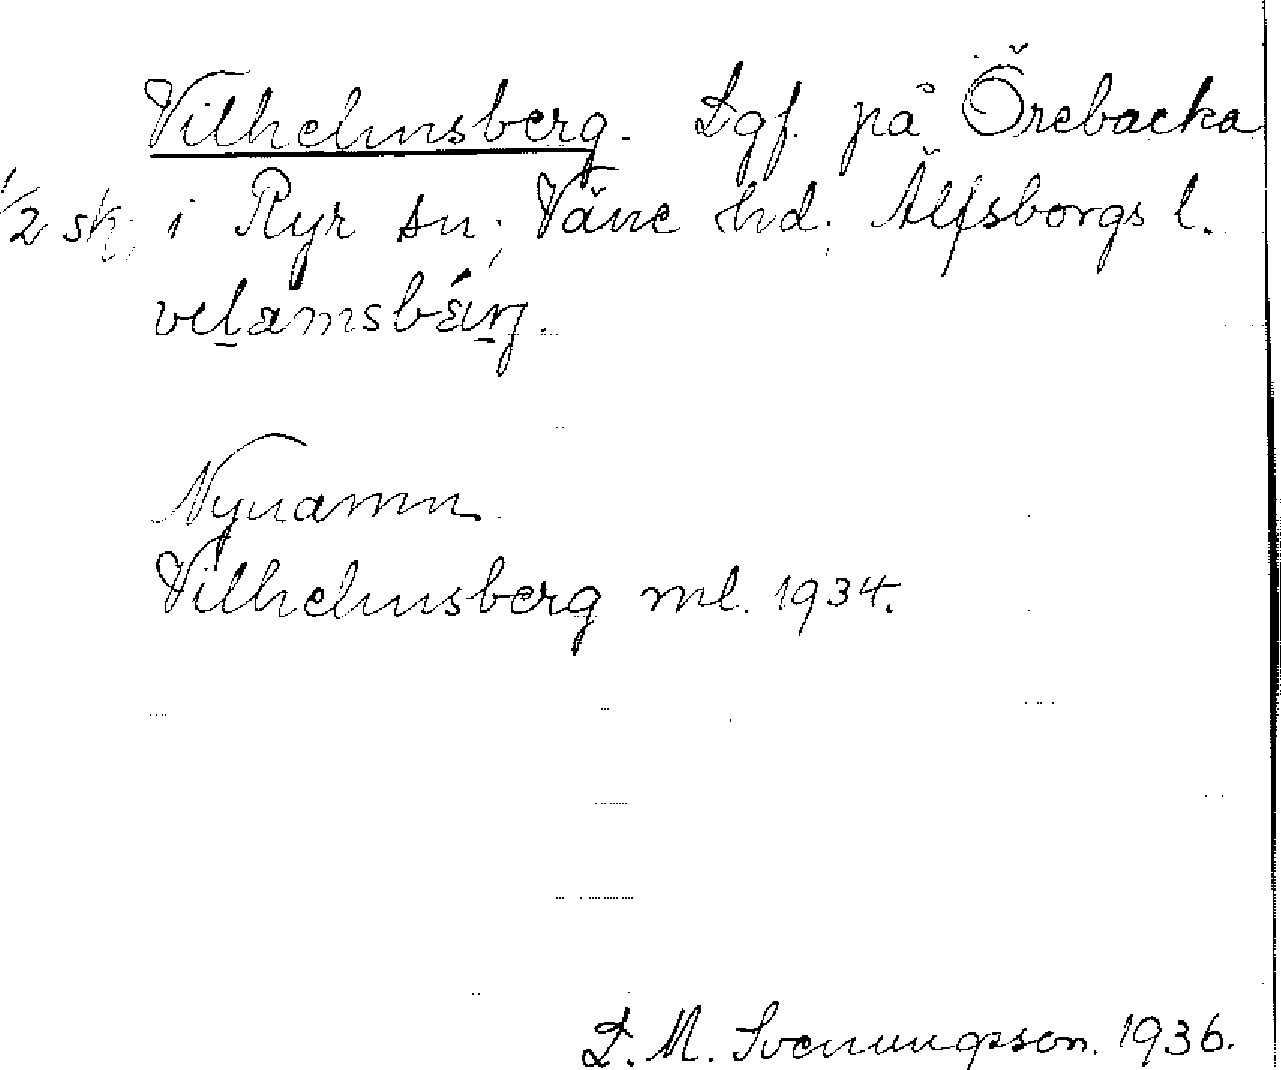 Vilhelmsberg. Lgf. på Örebacka
1/2 sk, i Ryr sn; Väne hd; Älfsborgs l.
velamsbärj.
Nynamn
Vilhelmsberg ml. 1934.
D. M. Svenungsson. 1936.